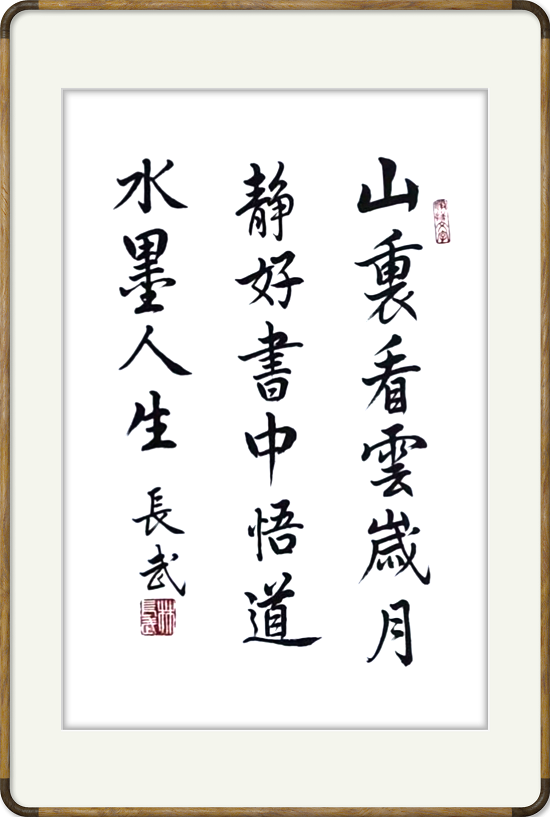 山裏看雲歲月
静好書中悟道
水墨人生
長武
林長武